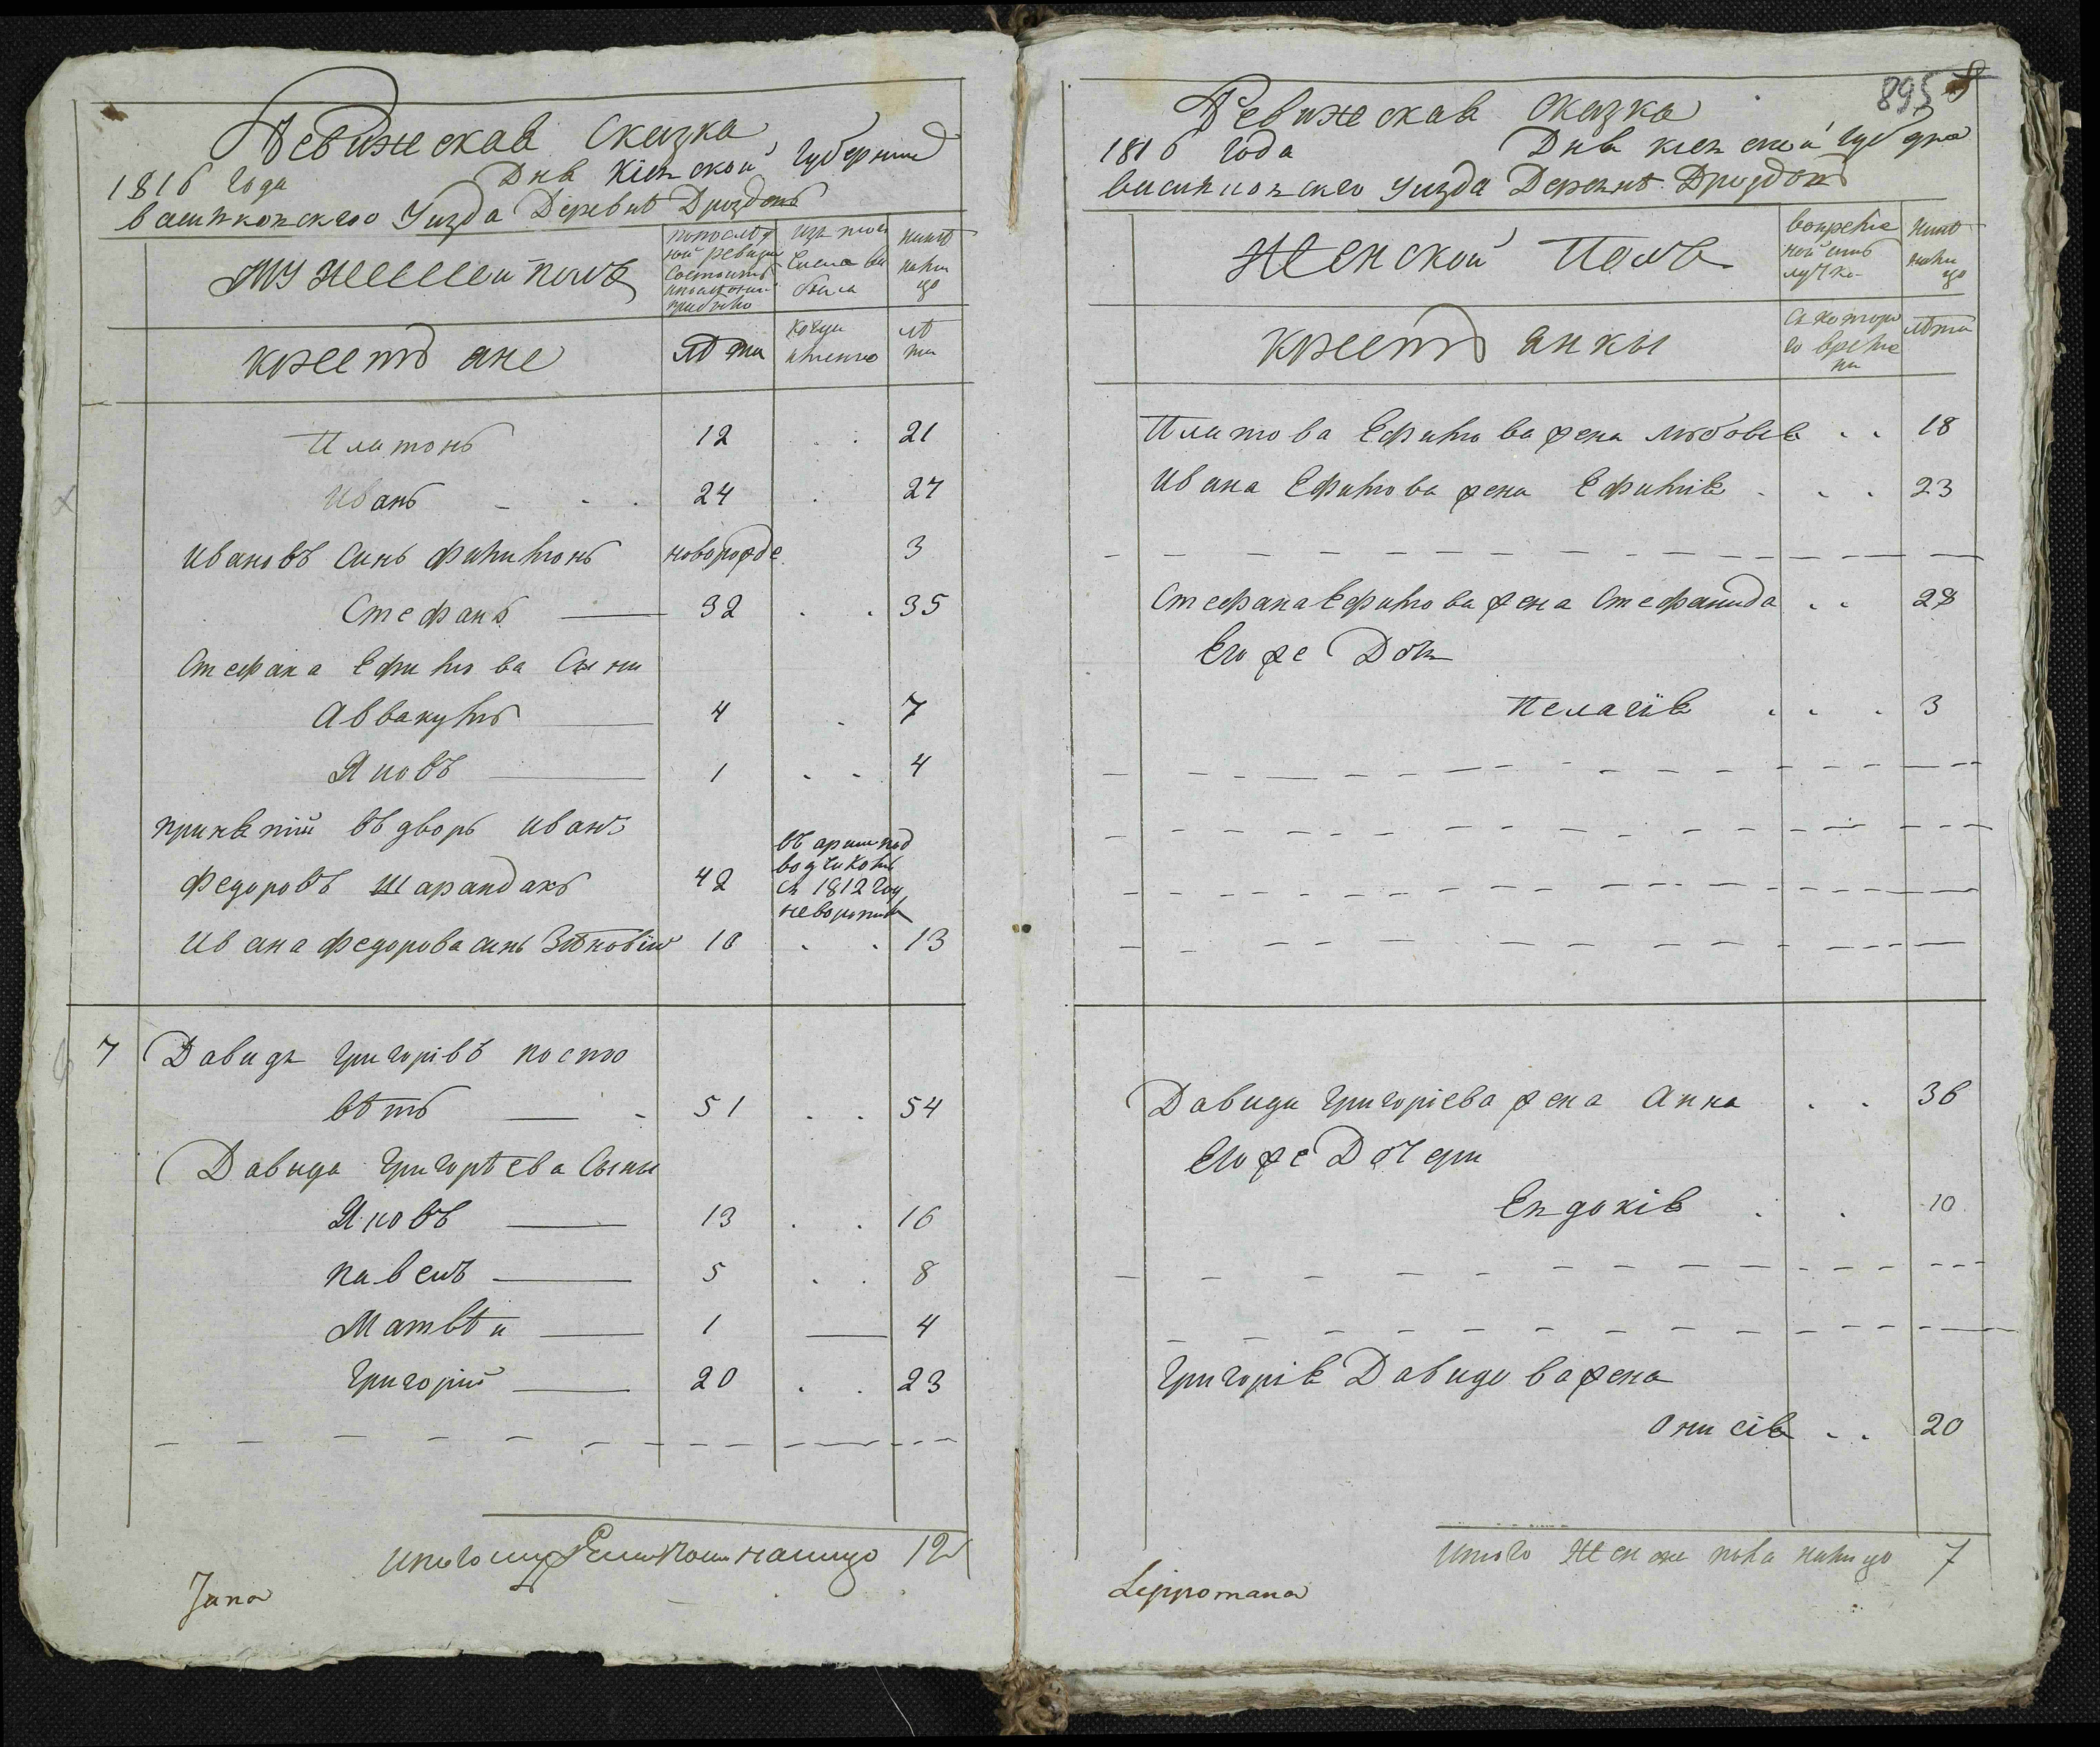 Ревижская Сказка
1816 Года Дня Кіевской Губерніи
васильковского Уизда Деревнѣ Дрозdовъ
Мужеской полъ
попослѣд
ной ревизіи
Состоитъ
изъ того
Числа вы
была
нинѣ
нали
цо
крестьяне
Лѣта
Когда
именно
лѣ
та
Платонъ 12 . . 21
Иванъ - . . 24 . 27
Ивановъ Синъ Филимонъ новорожде 3
Стефанъ 32 . . 35
Стефана Ефимова Сыни
Аввакумъ 4 . 7
Яковъ 1 . . 4
принятій въ дворъ иванъ
Федоровъ Шарандакъ 42
въ арми под
водчикомъ
съ 1812 Году
неворотился
Ивана Федорова синъ Зѣновій 10 . . 13
7 Давидъ Григорівъ косто
вѣтъ - 51 . . 54
Давида Григорѣева Сыни
Яковъ 13 . . 16
павелъ 5 . . 8
Матвѣи 1 4
Григорій 20 . . 23
налицо 12
Jana
895
Ревижеская Сказка
1816 Года Дня кіевской Губерн
васильковского Уизда Деревнѣ Дроздовъ
Женской Полъ
вовреме
ной отъ
лучке
нинѣ
нали
цо
крестьянки
Съ которо
го време
ни
лѣта
Платова Ефимова жена Любовія . . 18
Ивана Ефимова жена Ефимія . . . 23
Стефана Ефимова жена Стефанида . . 28
Его же Дочь
Пелагія . . . 3
Давида Григоріева жена Анна . . 36
Его же Дочери
Евдокія . . 10
Григорія Давидова жена
Онисія . . 20
итого женска пола налицо 7
Lippomana